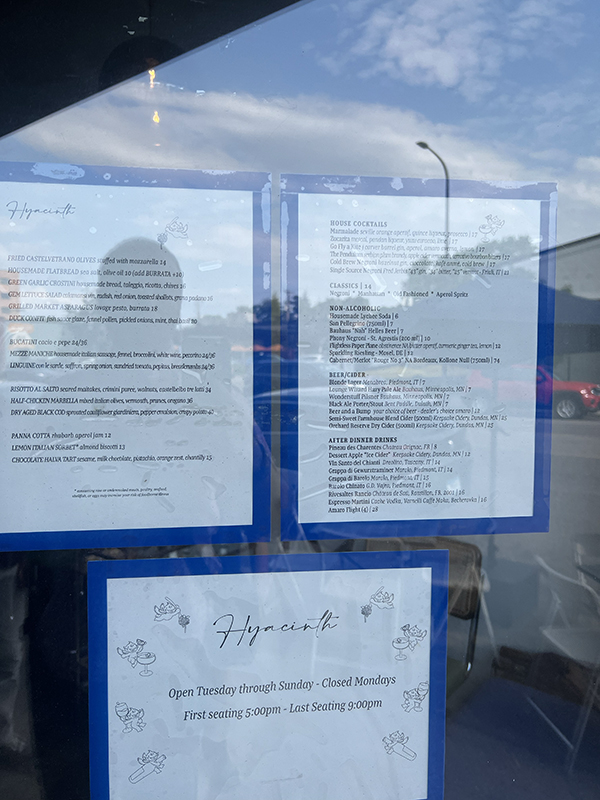 Hyacinth
FRIED CASTELVETRANO OLIVES stuffed with mozzarella 14
HOUSEMADE FLATBREAD sea salt, olive oil 10 (add BURRATA +10)
GREEN GARLIC CROSTINI housemade bread, taleggio, ricotta, chives 16
GEM LETTUCE SALAD red radish, red onion, toasted shallots, grana padano 16
GRILLED MARKET ASPARAGUS lovage pesto, burrata 18
DUCK CONFIT fish sauce glaze, fennel pollen, pickled onions, mint, thai basil 20
BUCATINI cacio e pepe 24/36
MEZZE MANICHE housemade italian sausage, fennel, broccolini, white wine, pecorino 24/36
LINGUINI con le sarde, saffron, spring onion, sundried tomato, pepitas, breadcrumbs 24/36
RISOTTO AL SALTO seared maitakes, crimini puree, walnuts, castelbelbo tre latti 34
HALF-CHICKEN MARBELLA mixed italian olives, vermouth, prunes, oregano 36
DRY AGED BLACK COD sprouted cauliflower giardiniera, pepper emulsion, crispy potato 40
PANNA COTTA rhubarb aperol jam 12
LEMON ITALIAN SORBET* almond biscotti 13
CHOCOLATE HALVA TART sesame, milk chocolate, pistachio, orange zest, chantilly 15
HOUSE COCKTAILS
Marmalade seville orange aperol, quince liqueur, prosecco | 17
CLASSICS | 14
Negroni * Manhattan * Old Fashioned * Aperol Spritz
NON-ALCOHOLIC
Housemade Lychee Soda | 6
San Pellegrino (750ml) | 7
Bauhaus "Nah" Helles Beer | 7
Phony Negroni - St. Agrestis (200 ml) | 10
Sparkling Riesling - Muvel, DE | 11
Cabernet/Merlot "Rouge No 3" NA Bordeaux, Kollone Null (750ml) | 74
BEER/CIDER
Blonde Lager Menabrea, Piedmont, IT | 7
Lounge Wizard Hazy Pale Ale Bauhaus, Minneapolis, MN | 7
Wonderstuff Pilsner Bauhaus, Minneapolis, MN | 7
Black Ale Porter/Stout Bent Paddle, Duluth, MN | 7
Beer and a Bump your choice of beer - dealer's choice amaro | 12
Semi-Sweet Farmhouse Blend Cider (500ml) Keepsake Cidery, Dundas, MN | 25
Orchard Reserve Dry Cider (500ml) Keepsake Cidery, Dundas, MN | 25
AFTER DINNER DRINKS
Pineau des Charentes Chateau Orignac, FR | 8
Dessert Apple "Ice Cider" Keepsake Cidery, Dundas, MN | 12
Vin Santo del Chianti Dreolino, Tuscany, IT | 14
Grappa di Gewurztraminer Marolo, Piedmont, IT | 14
Grappa di Barolo Marolo, Piedmont, IT | 15
Barolo Chinato G.D. Vajra, Piedmont, IT | 16
Espresso Martini | 16
Amaro Flight (4) | 28
Hyacinth
Open Tuesday through Sunday - Closed Mondays
First seating 5:00pm - Last Seating 9:00pm